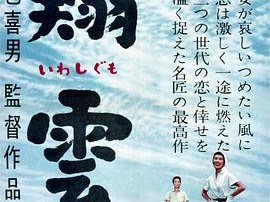 女が哀しいつめたい風に
恋は激しく一途に燃えた
二つの世代の恋と倖せを
温く捉えた名匠の最高作
雲
いわしぐも
喜男 監督作品